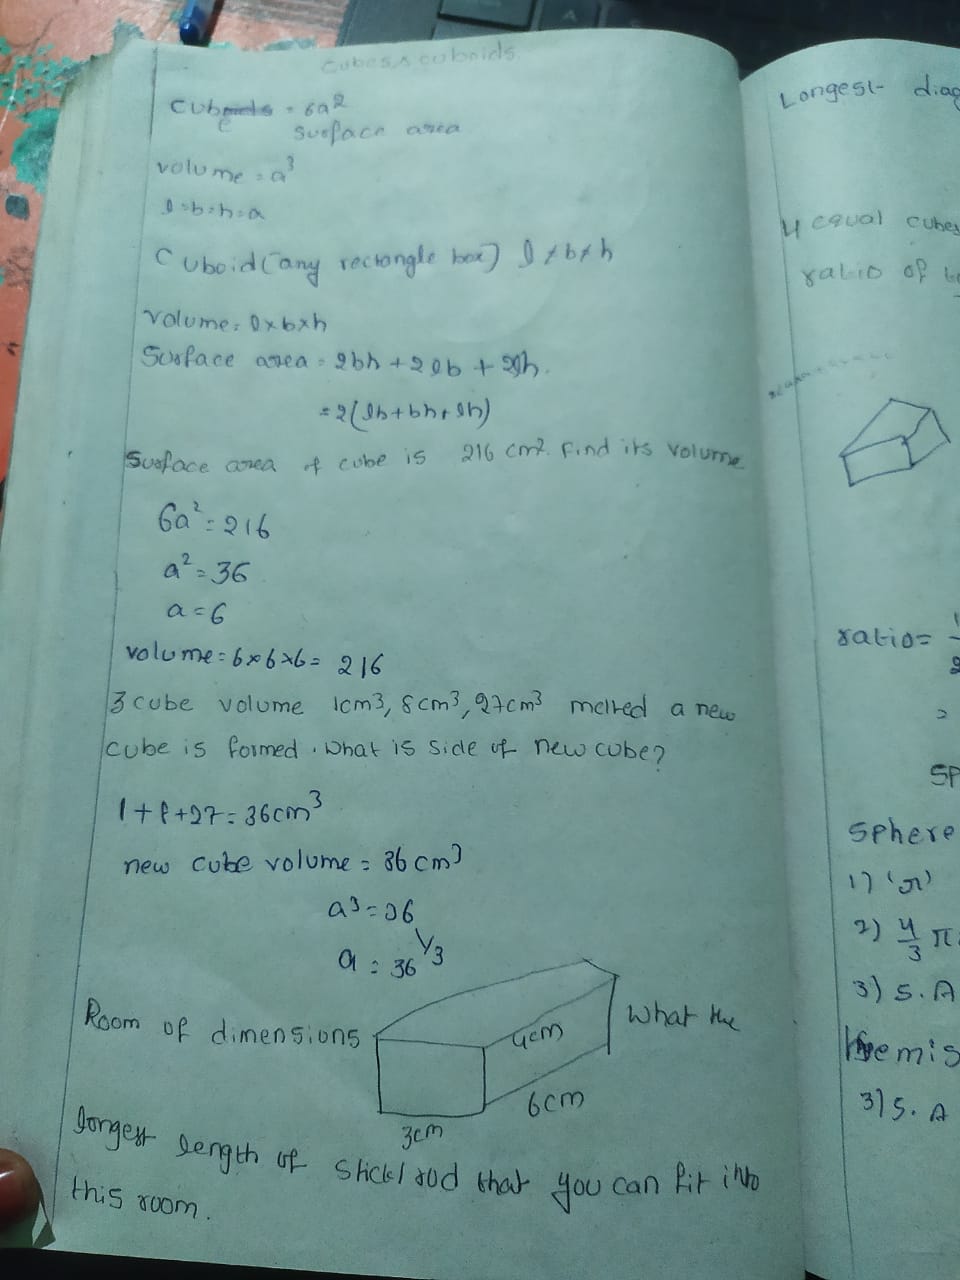 Cubes & cuboids.
Cube = 6a²
Surface area
Volume = a³
l=b=h=a
Cuboid (any rectangle box) l≠b≠h
Volume = l×b×h
Surface area = 2bh + 2lb + 2lh.
= 2(lb+bh+lh)
Surface area of cube is 216 cm². Find its volume
6a² = 216
a² = 36
a = 6
volume = 6×6×6 = 216
3 cube volume 1cm3, 8cm3, 27cm3 melted a new
cube is formed. What is side of new cube?
1+8+27 = 36cm³
new cube volume = 36 cm3
a3 = 36
a = 36^1/3
Room of dimensions
4cm
6cm
3cm
What the
longest length of stick/rod that you can fit into
this room.
Longest diag
4 equal cubes
ratio of
ratio =
Sphere
1) 'r'
2) 4/3 π
3) S.A
Hemis
3) S.A